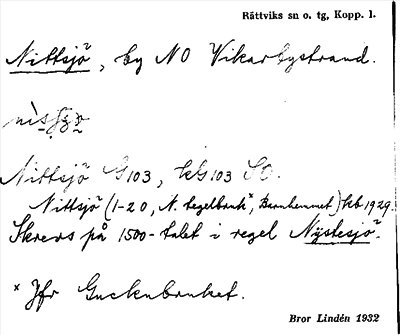 Rättviks sn o. tg, Kopp. l.
Nittsjö, by NO Vikarbystrand.
Nittsjö G103, kG103 SO.
Nittsjö (1-20, N. tegelbruk*, Barnhemmet) kb 1929.
Skrevs på 1500-talet i regel Nystesjö.
* Jfr Guckubruket.
Bror Lindén 1932